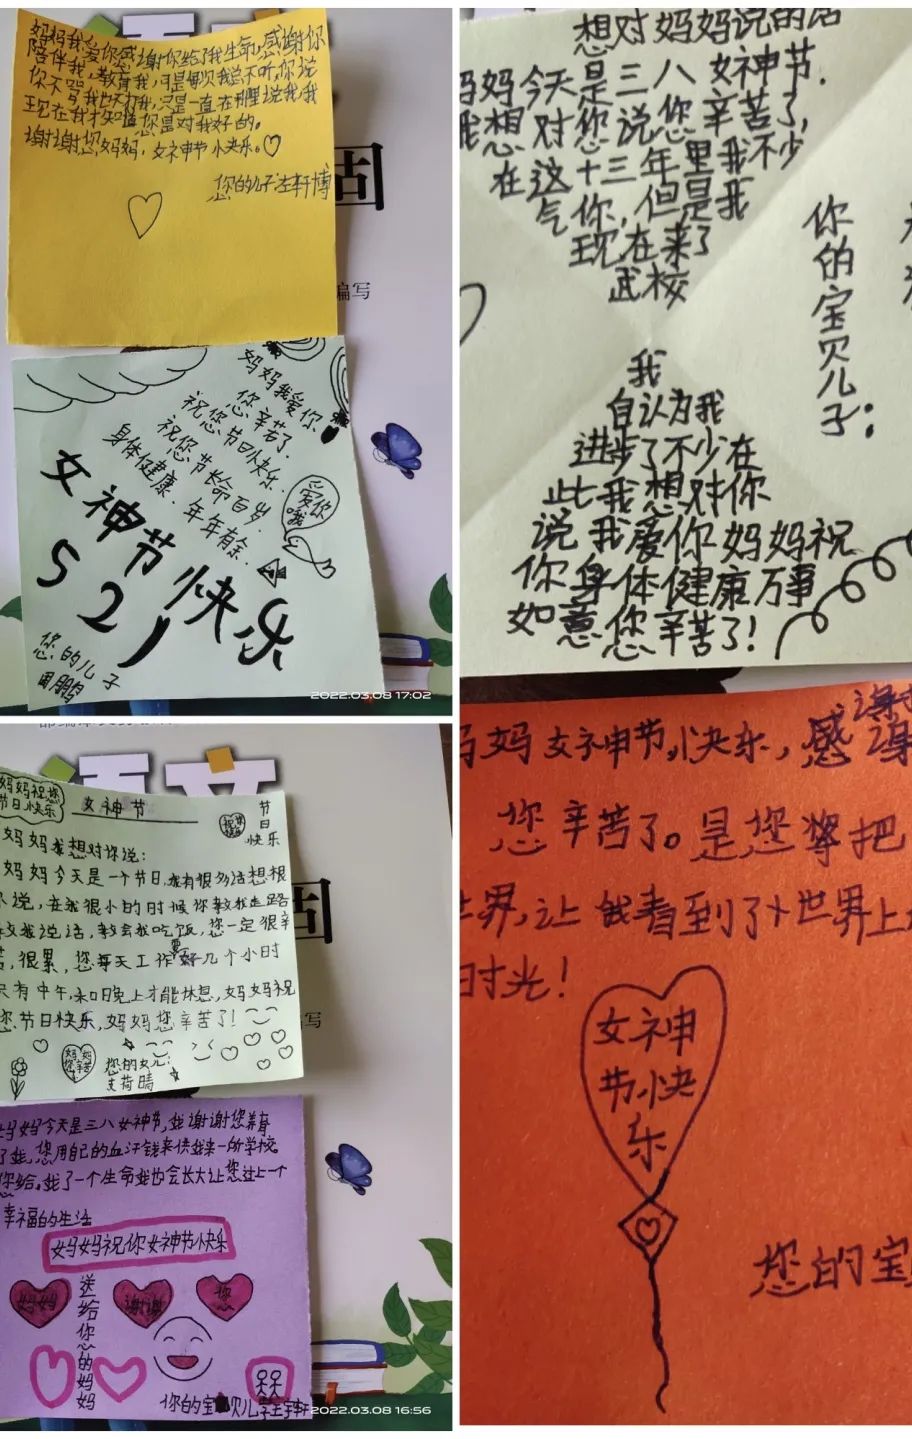 妈妈我爱你感谢你给了我生命,感谢你
陪伴我,教育我,可是每次我总不听,你说
你不骂我也不打我,只是一直在那里说我,我
现在我才知道您是对我好的。
谢谢您,妈妈,女神节快乐。
您的儿子:左轩博
固
编写
妈妈我爱你
您辛苦了.
祝您节日快乐.
祝您节长命百岁.
身体健康.年年有余.
爱你哦
女神节快乐
521
您的儿子
2022.03.08 17:02
想对妈妈说的话
妈妈今天是三八女神节.
我想对您说您辛苦了,
在这十三年里我不少
气你,但是我
现在来了
武校
我
自认为我
进步了不少在
此我想对你
说我爱你妈妈祝
你身体健康万事
如意您辛苦了!
你的宝贝儿子:
语文
妈妈祝您
节日快乐
女神节
节日快乐
妈妈我想对你说:
妈妈今天是一个节日,我有很多话想根
你说,在我很小的时候你教我走路
教我说话,教会我吃饭,您一定很辛
苦,很累,您每天工作要好几个小时
只有中午,和晚上才能休息,妈妈祝
您节日快乐,妈妈您辛苦了!
妈妈您辛苦了
您的女儿:
支荷晴
固
编写
妈妈今天是三八女神节,我谢谢您养育
了我,您用自己的血汗钱来供我来一所学校。
您给。我了一个生命我也会长大让您过上一个
幸福的生活
妈妈祝你女神节快乐
妈妈
谢谢
您
送给你的妈妈
你的宝贝儿子王宇轩
2022.03.08 16:56
妈妈女神节快乐,感谢
您辛苦了。是您掌把
世界,让我看到了+世界上
时光!
女神
节快
乐
您的宝